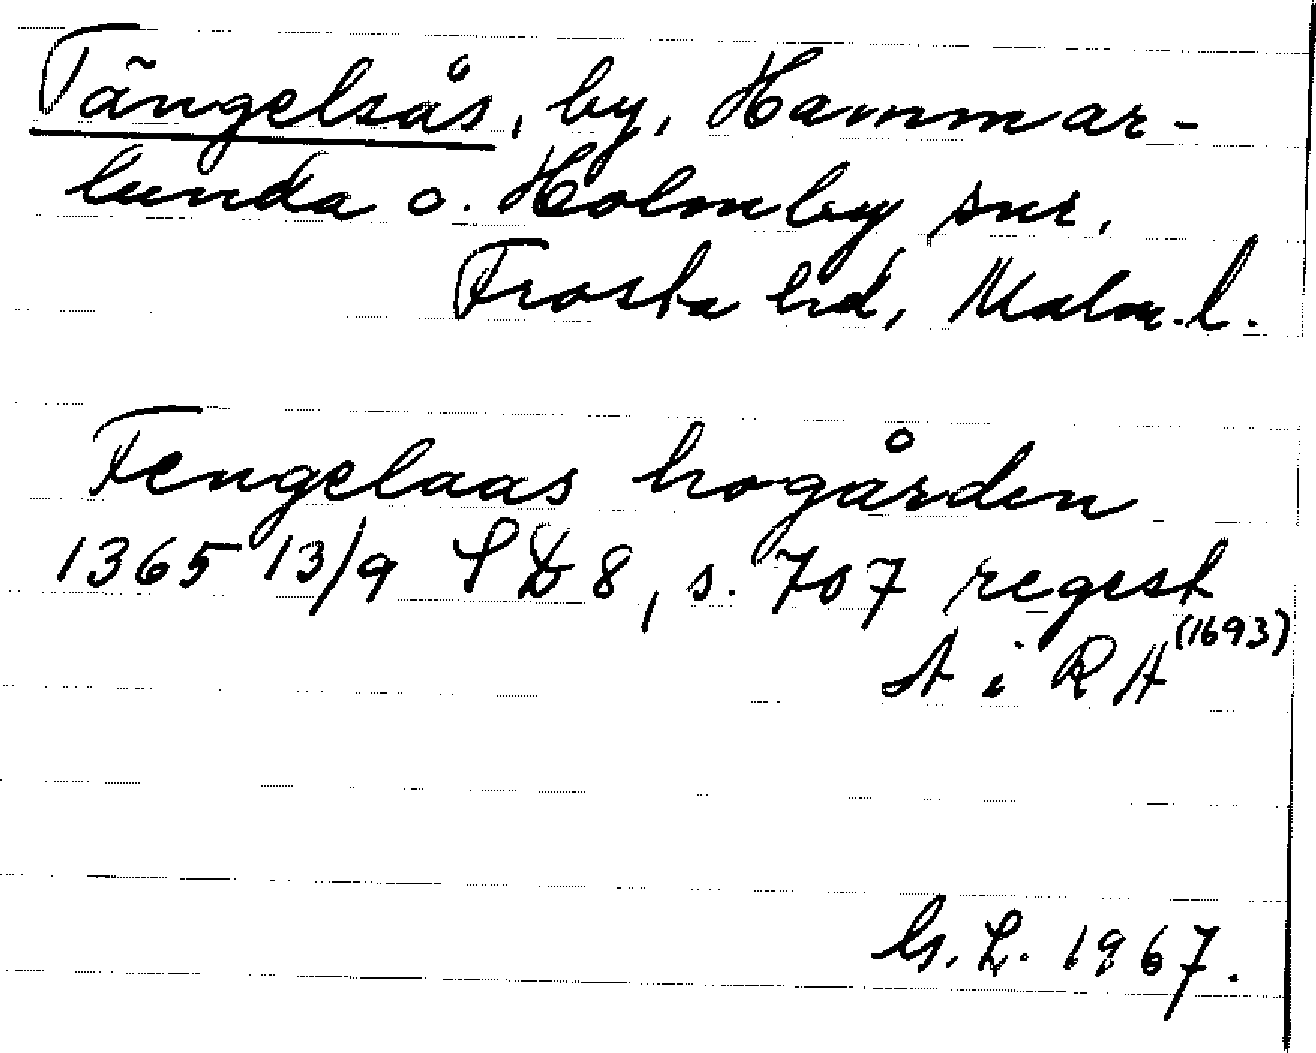 Tängelsås, by, Hammar-
lunda o. Holmby snr,
Frosta hd, Malm.l.
Fengelaas hogården
1365 13/9 SD 8, s. 707 regest
(1693)
A i RA
G.L. 1967.